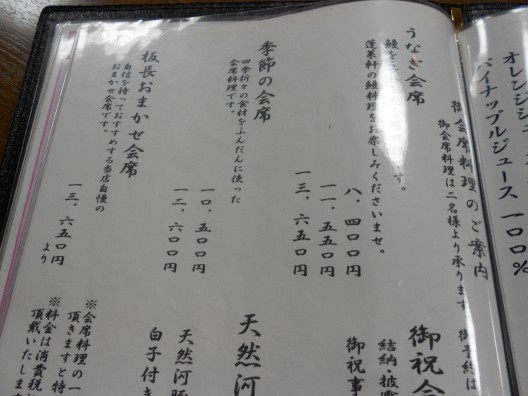 オレンジジュース
パイナップルジュース 100%
御会席料理のご案内
御会席料理は二名様より承ります
うなぎ会席
蓬莱軒の鰻料理をお楽しみくださいませ。
八、四〇〇円
一一、五五〇円
一三、六五〇円
季節の会席
四季折々の食材をふんだんに使った
会席料理です。
一〇、五〇〇円
一二、六〇〇円
板長おまかせ会席
自信を持っておすすめする当店自慢の
おまかせ会席です。
一三、六五〇円より
御祝会
結納・披露
御祝事
天然河
天然河豚
白子付き
※会席料理の一
頂きますと特
※料金は消費税
頂戴いたします